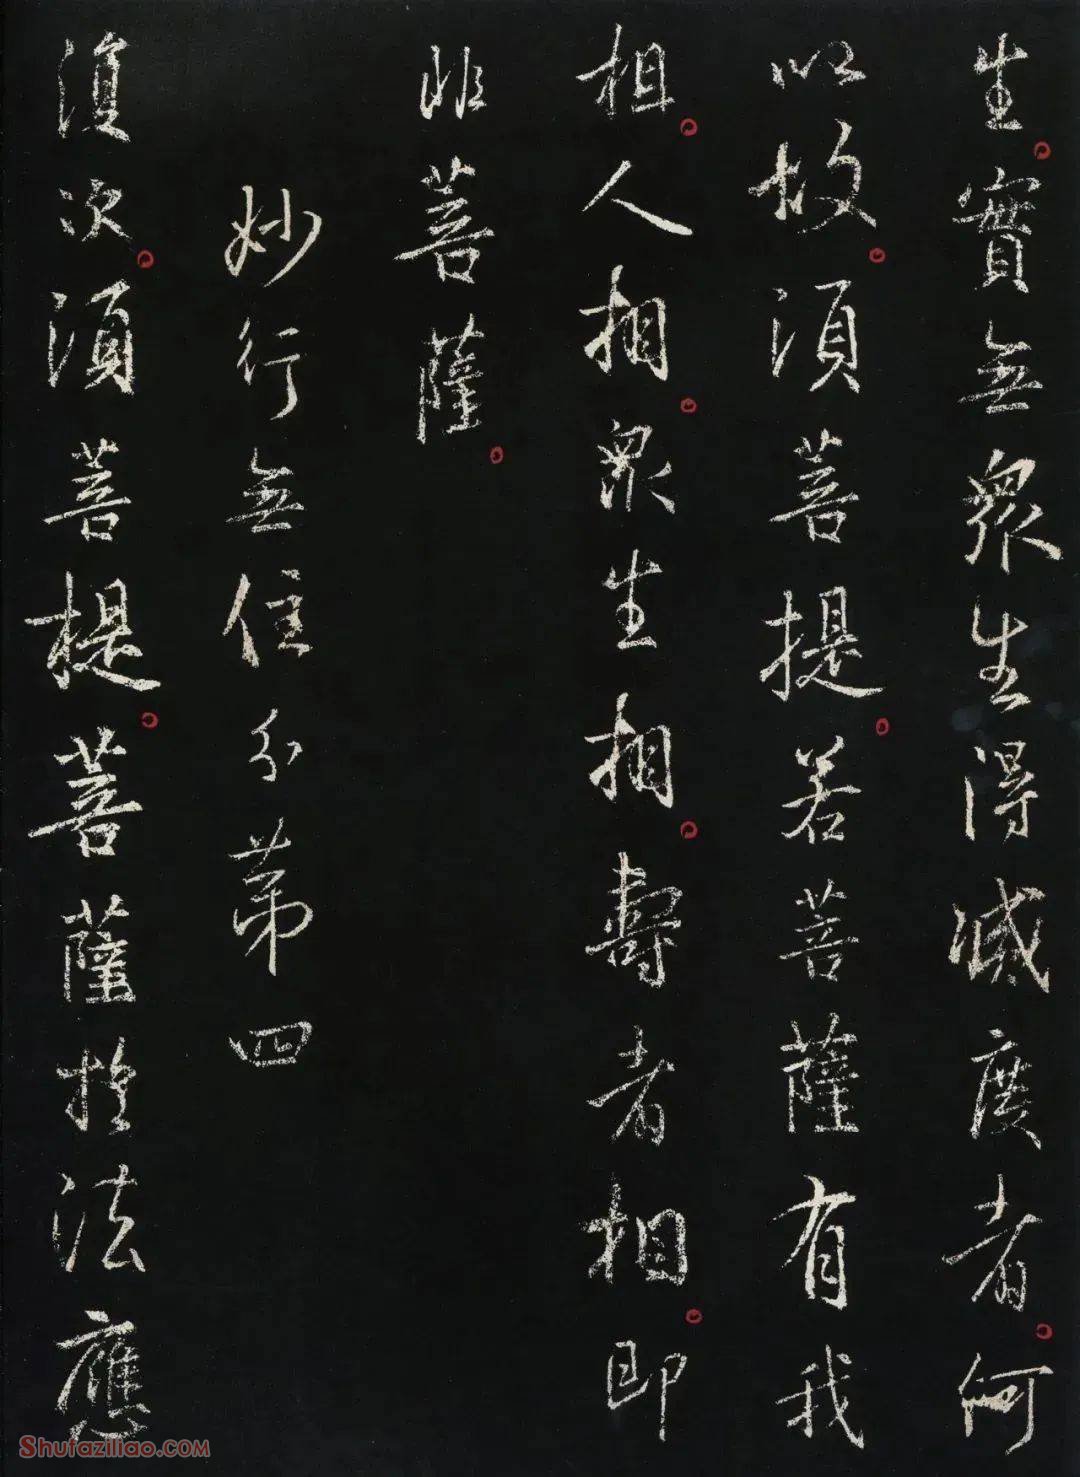 生實無眾生得滅度者何
以故須菩提若菩薩有我
相人相眾生相壽者相即
非菩薩
妙行無住分第四
復次須菩提菩薩於法應
SHUFAZILIAO.COM